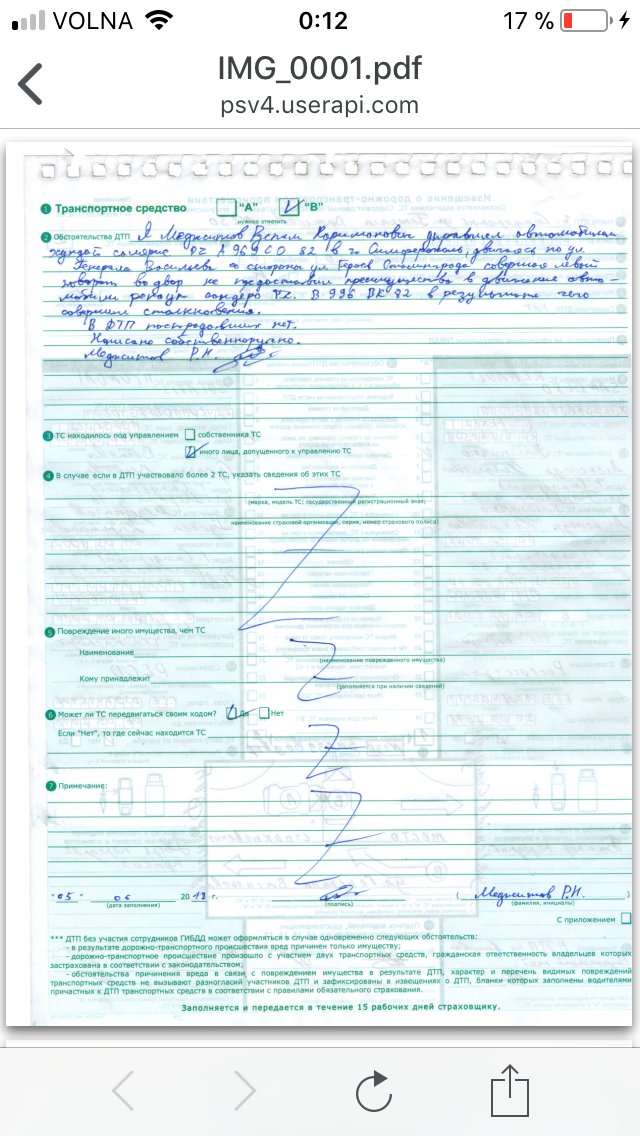 VOLNA 0:12 17 %
IMG_0001.pdf
psv4.userapi.com
1 Транспортное средство "А" V "В"
нужное отметить
2 Обстоятельства ДТП Я Меджитов управлял автомобилем
солярис г/з А 969 СО 82 в г. Симферополь двигаясь по ул.
Генерала Васильева со стороны ул. Героев Сталинграда совершая левой
во двор не преимущества в движении авто-
сандеро г/з. В 996 ВК 82 в результате чего
совершил столкновение.
В ДТП пострадавших нет.
Написано собственноручно.
Меджитов Р.Н.
3 ТС находилось под управлением собственника ТС
V иного лица, допущенного к управлению ТС
4 В случае если в ДТП участвовало более 2 ТС, указать сведения об этих ТС
(марка, модель ТС, государственный регистрационный знак;
наименование страховой организации, серия, номер страхового полиса)
5 Повреждение иного имущества, чем ТС
Наименование
(наименование поврежденного имущества)
Кому принадлежит
(заполняется при наличии сведений)
6 Может ли ТС передвигаться своим ходом? V Да Нет
Если "Нет", то где сейчас находится ТС
7 Примечание:
"05" 06 2018 г. (Меджитов Р.Н.)
(дата заполнения) (подпись) (фамилия, инициалы)
С приложением
*** ДТП без участия сотрудников ГИБДД может оформляться в случае одновременно следующих обстоятельств:
- в результате дорожно-транспортного происшествия вред причинен только имуществу;
- дорожно-транспортное происшествие произошло с участием двух транспортных средств, гражданская ответственность владельцев которых
застрахована в соответствии с законодательством;
- обстоятельства причинения вреда в связи с повреждением имущества в результате ДТП, характер и перечень видимых повреждений
транспортных средств не вызывают разногласий участников ДТП и зафиксированы в извещениях о ДТП, бланки которых заполнены водителями
причастных к ДТП транспортных средств в соответствии с правилами обязательного страхования.
Заполняется и передается в течение 15 рабочих дней страховщику.